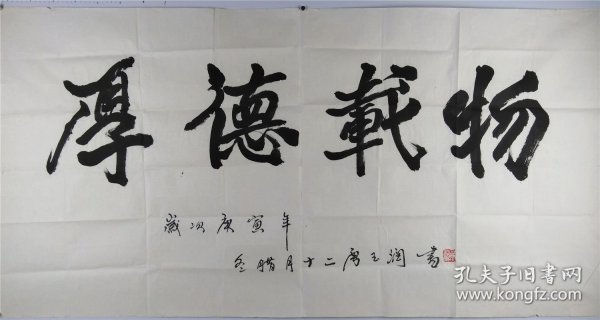 厚德載物
歲次庚寅年
冬腊月十二唐王润書
孔夫子旧书网
www.kongfz.com